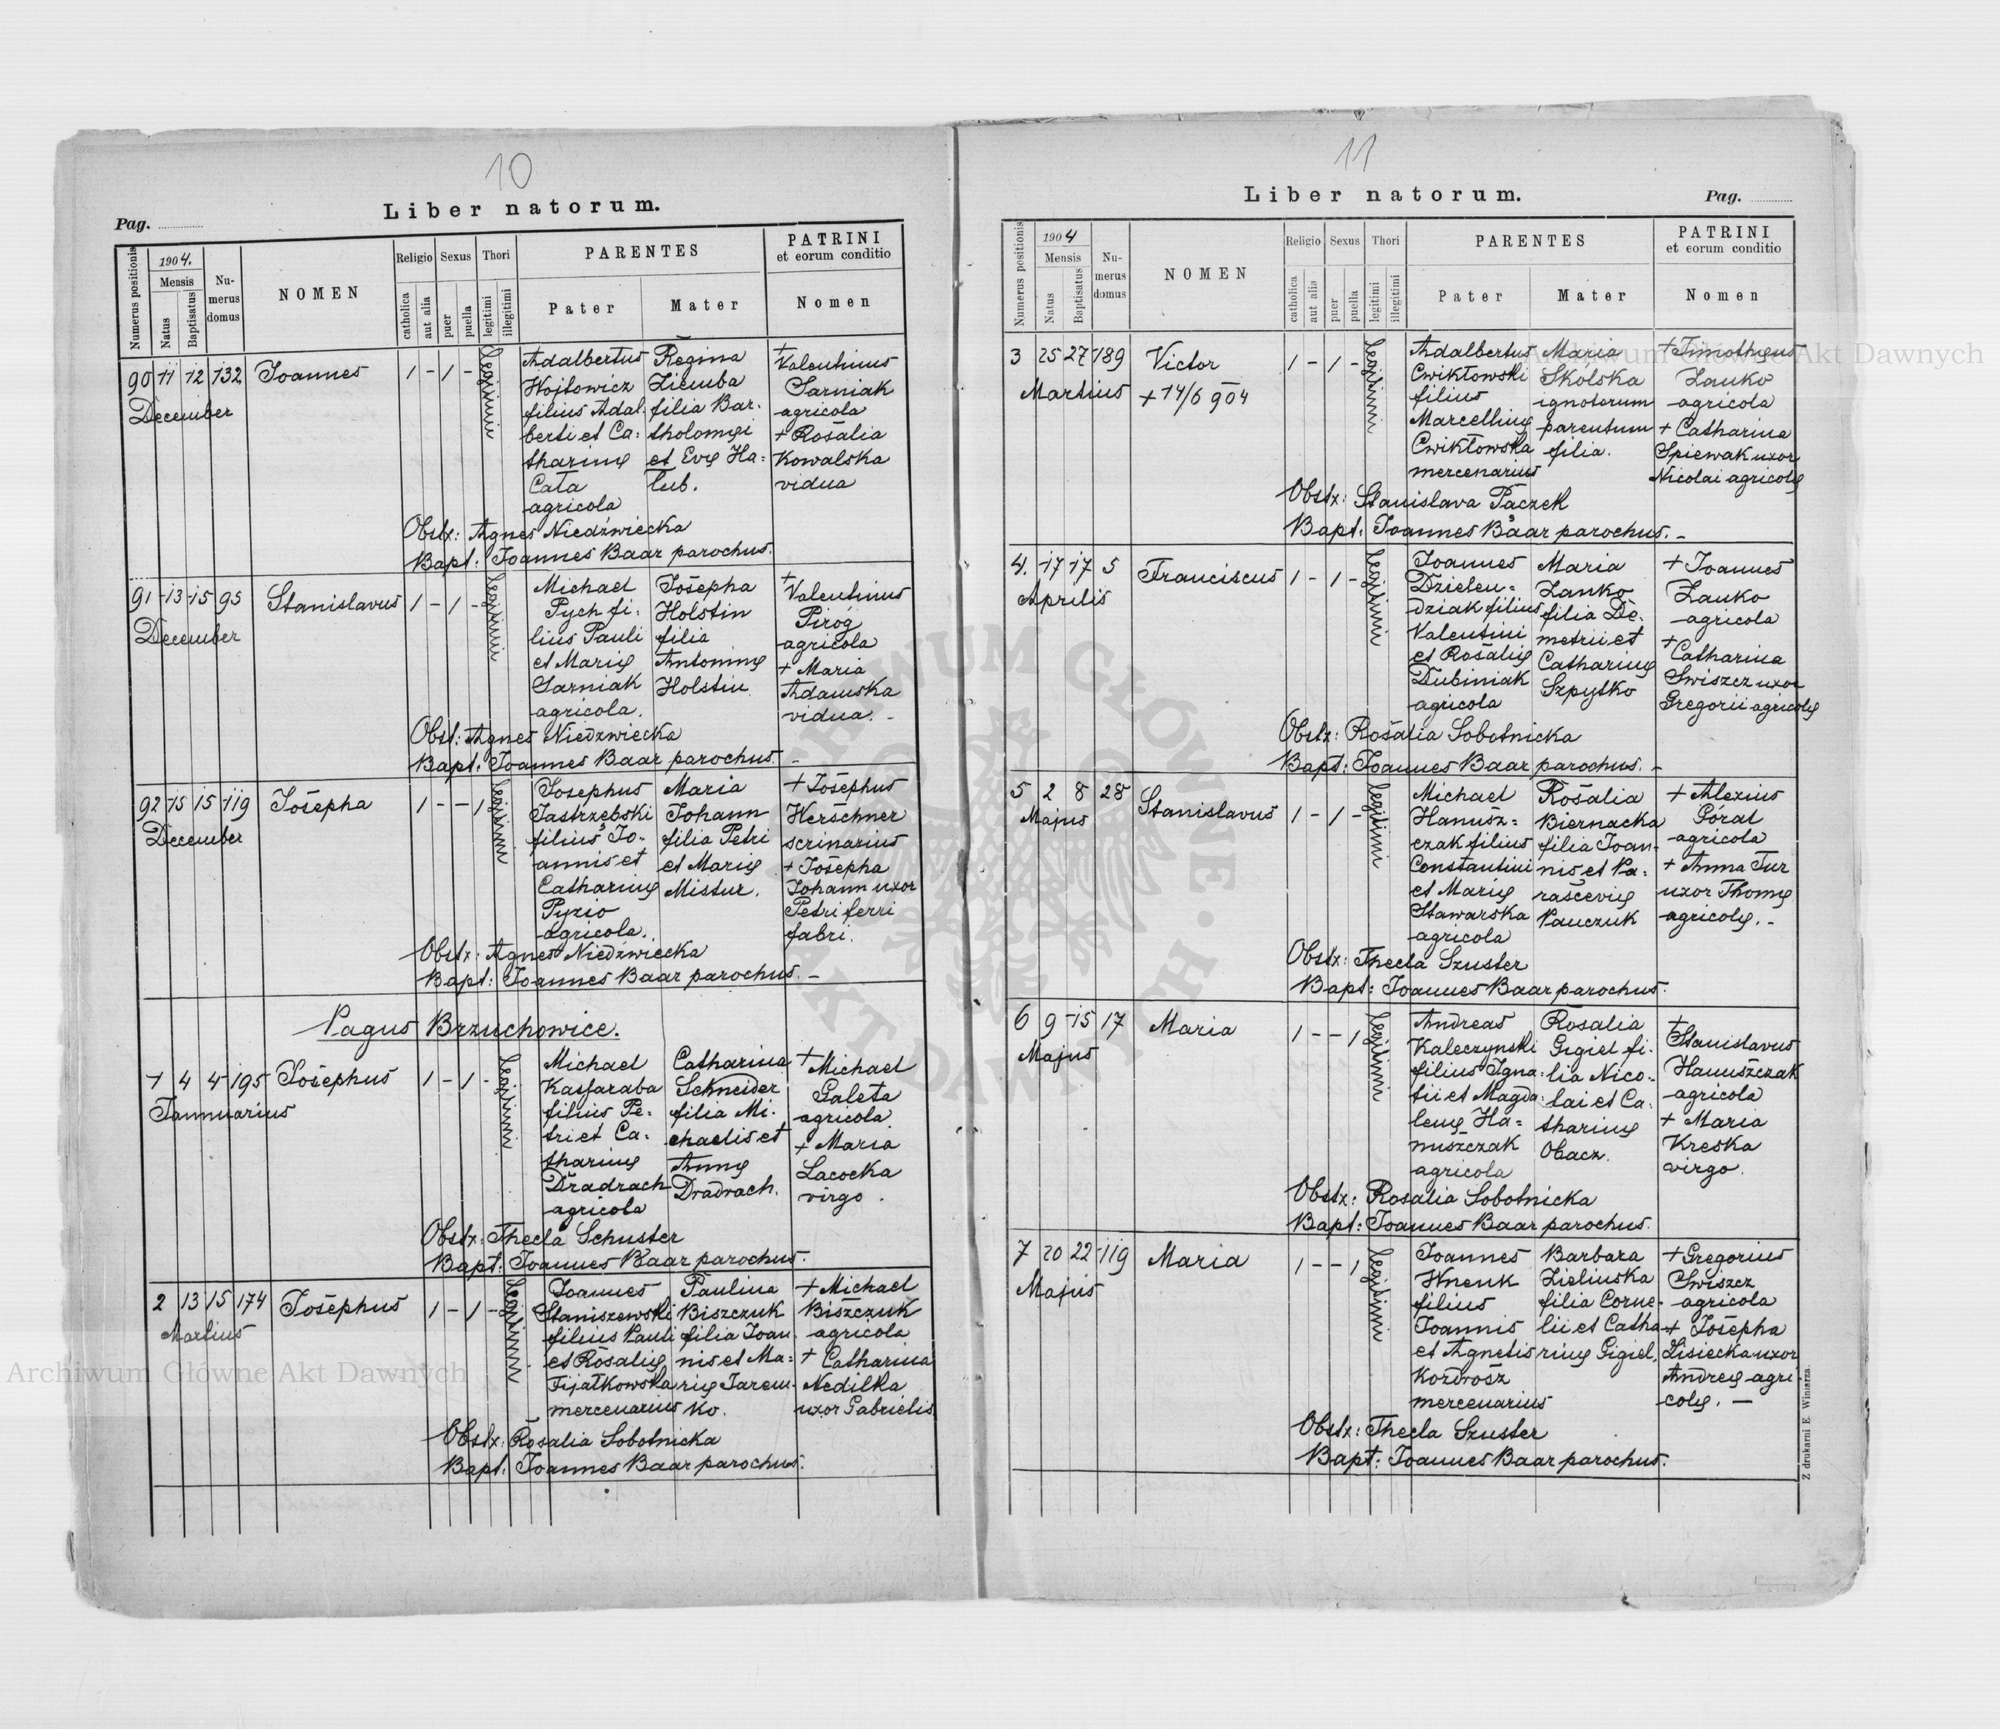 10
Liber natorum.
Pag.
Numerus positionis
1904.
Mensis
Natus
Baptisatus
Numerus domus
NOMEN
Religio
catholica
aut alia
Sexus
puer
puella
Thori
legitimi
illegitimi
PARENTES
Pater
Mater
PATRINI
et eorum conditio
Nomen
90 11 12 132 Joannes 1 - 1 -
December
legitimi
Adalbertus
Wojtowicz
filius Adal
berti et Ca:
tharinę
Cała
agricola
Regina
Ziemba
filia Bar:
tholomęi
et Evę Ha:
lub.
+ Valentinus
Sarniak
agricola
+ Rosalia
Kowalska
vidua
Obstx: Agnes Niedźwiecka
Bapt: Joannes Baar parochus.
91 13 15 95 Stanislavus 1 - 1 -
December
legitimi
Michael
Pych fi:
lius Pauli
et Marię
Sarniak
agricola.
Josepha
Holstin
filia
Antoninę
Holstin
+ Valentinus
Piróg
agricola
+ Maria
Adamska
vidua. -
Obst: Agnes Niedźwiecka
Bapt: Joannes Baar parochus. -
92 15 15 119 Josepha 1 - - 1
December
legitimi
Josephus
Jastrzębski
filius Jo-
annis et
Catharinę
Pyzio
agricola.
Maria
Johann
filia Petri
et Marię
Mistur.
+ Josephus
Herschner
scrinarius
+ Josepha
Johann uxor
Petri ferri
fabri.
Obstx: Agnes Niedźwiecka
Bapt: Joannes Baar parochus. -
Pagus Brzuchowice.
1 4 4 195 Josephus 1 - 1 -
Jannuarius
legitimi
Michael
Kasfaraba
filius Pe:
tri et Ca:
tharinę
Dradrach
agricola
Catharina
Schneider
filia Mi:
chaelis et
Annę
Dradrach.
+ Michael
Galeta
agricola
+ Maria
Lacocka
virgo.
Obstx: Thecla Schuster
Bapt: Joannes Baar parochus.
2 13 15 174 Josephus 1 - 1 -
Martius
legitimi
Joannes
Staniszewski
filius Pauli
et Rosalię
Fijałkowska
mercenarius
Paulina
Biszczuk
filia Joan
nis et Ma:
rię Jarem-
ko.
+ Michael
Biszczuk
agricola
+ Catharina
Nedilka
uxor Gabrielis
Obstx: Rosalia Sobotnicka
Bapt: Joannes Baar parochus.
11
Liber natorum.
Pag.
Numerus positionis
1904
Mensis
Natus
Baptisatus
Numerus domus
NOMEN
Religio
catholica
aut alia
Sexus
puer
puella
Thori
legitimi
illegitimi
PARENTES
Pater
Mater
PATRINI
et eorum conditio
Nomen
3 25 27 189 Victor 1 - 1 -
Martius + 14/6 904
legitimi
Adalbertus
Cwikłowski
filius
Marcellinę
Cwikłowska
mercenarius
Maria
Skolska
ignotorum
parentum
filia.
+ Timotheus
Zauko
agricola
+ Catharina
Spiewak uxor
Nicolai agricolę
Obstx: Stanislava Pączek
Bapt: Joannes Baar parochus. -
4. 17 17 5 Franciscus 1 - 1 -
Aprilis
legitimi
Joannes
Dzielen:
dziak filius
Valentini
et Rosalię
Dubiniak
agricola
Maria
Zanko
filia De:
metrii et
Catharinę
Szpytko
+ Joannes
Zauko
agricola
+ Catharina
Swiszcz uxor
Gregorii agricolę
Obstx: Rosalia Sobotnicka
Bapt: Joannes Baar parochus. -
5 2 8 28 Stanislavus 1 - 1 -
Majus
legitimi
Michael
Hanusz:
czak filius
Constantini
et Marię
Stawarska
agricola
Rosalia
Biernacka
filia Joan-
nis et Pa:
rascevię
Pauczuk
+ Alexius
Góral
agricola
+ Anna Tur
uxor Thomę
agricolę. -
Obstx: Thecla Szuster
Bapt: Joannes Baar parochus.
6 9 15 17 Maria 1 - - 1
Majus
legitimi
Andreas
Kaleczynski
filius Igna:
tii et Magda:
lenę Ha:
nuszczak
agricola
Rosalia
Gigiel fi:
lia Nico:
lai et Ca:
tharinę
Obacz.
+ Stanislavus
Hanuszczak
agricola
+ Maria
Kreska
virgo.
Obstx: Rosalia Sobotnicka
Bapt: Joannes Baar parochus.
7 20 22 119 Maria 1 - - 1
Majus
legitimi
Joannes
Wnenk
filius
Joannis
et Agnetis
Kozdrosz
mercenarius
Barbara
Zielinska
filia Corne-
lii et Catha
rinę Gigiel.
+ Gregorius
Swiszcz
agricola
+ Josepha
Lisiecka uxor
Andreę agri
colę. -
Obstx: Thecla Szuster
Bapt: Joannes Baar parochus.
Z drukarni E. Winiarza.
Archiwum Główne Akt Dawnych
Archiwum Główne Akt Dawnych
ARCHIWUM GŁÓWNE · AKT DAWNYCH ·